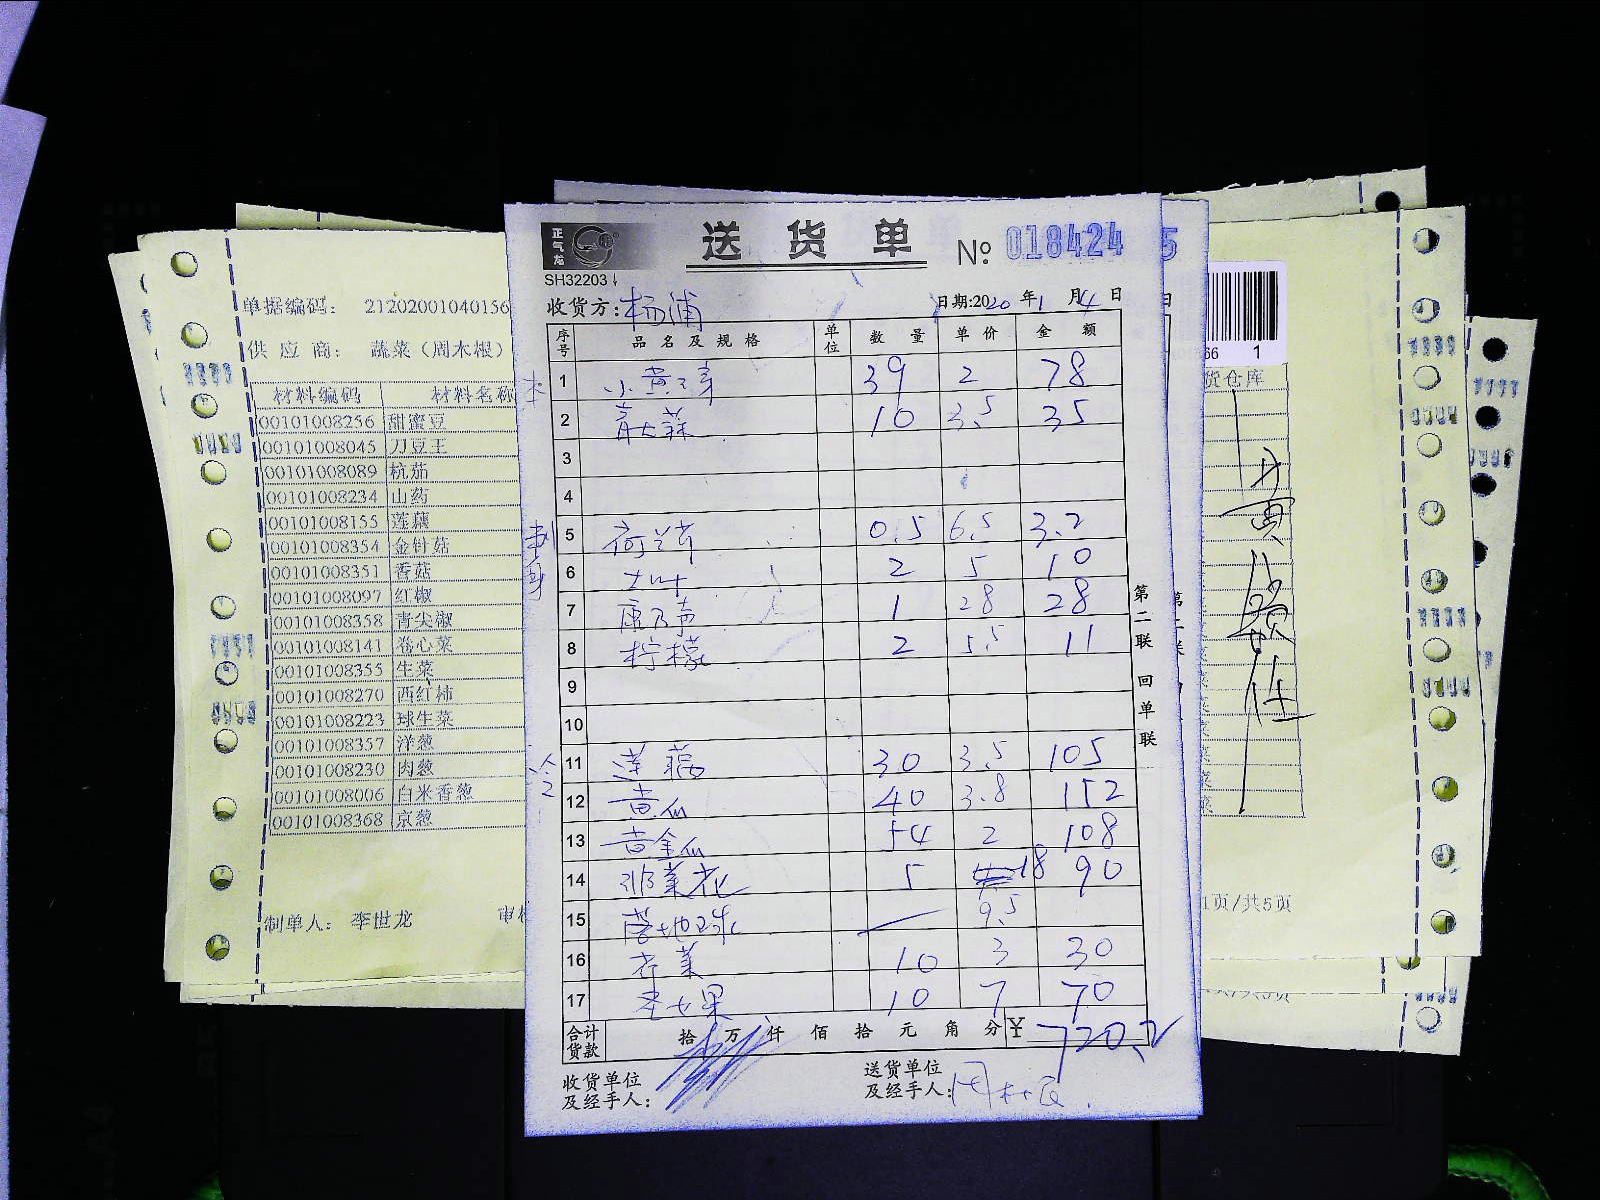 正气龙
送货单
№ 018424
5
SH32203
收货方：杨浦
日期:2020年1月4日
序号 品名及规格 单位 数量 单价 金额
1 39 2 78
2 10 3.5 35
3
4
5 0.5 6.5 3.2
6 2 5 10
7 1 28 28
8 柠檬 2 5.5 11
9
10
冷
11 莲藕 30 3.5 105
12 黄瓜 40 3.8 152
13 黄金瓜 54 2 108
14 18 90
15 9.5
16 10 3 30
17 圣女果 10 7 70
合计货款 拾 万 仟 佰 拾 元 角 分 ¥ 720.2
收货单位及经手人：
送货单位及经手人：
第二联 回单联
单据编码： 21202001040156
供应商： 蔬菜（周木根）
材料编码 材料名称
00101008256 甜蜜豆
00101008045 刀豆王
00101008089 杭茄
00101008234 山药
00101008155 莲藕
00101008354 金针菇
00101008351 香菇
00101008097 红椒
00101008358 青尖椒
00101008141 卷心菜
00101008355 生菜
00101008270 西红柿
00101008223 球生菜
00101008357 洋葱
00101008230 肉葱
00101008006 白米香葱
00101008368 京葱
制单人： 李世龙
审
66 1
货仓库
1页/共5页